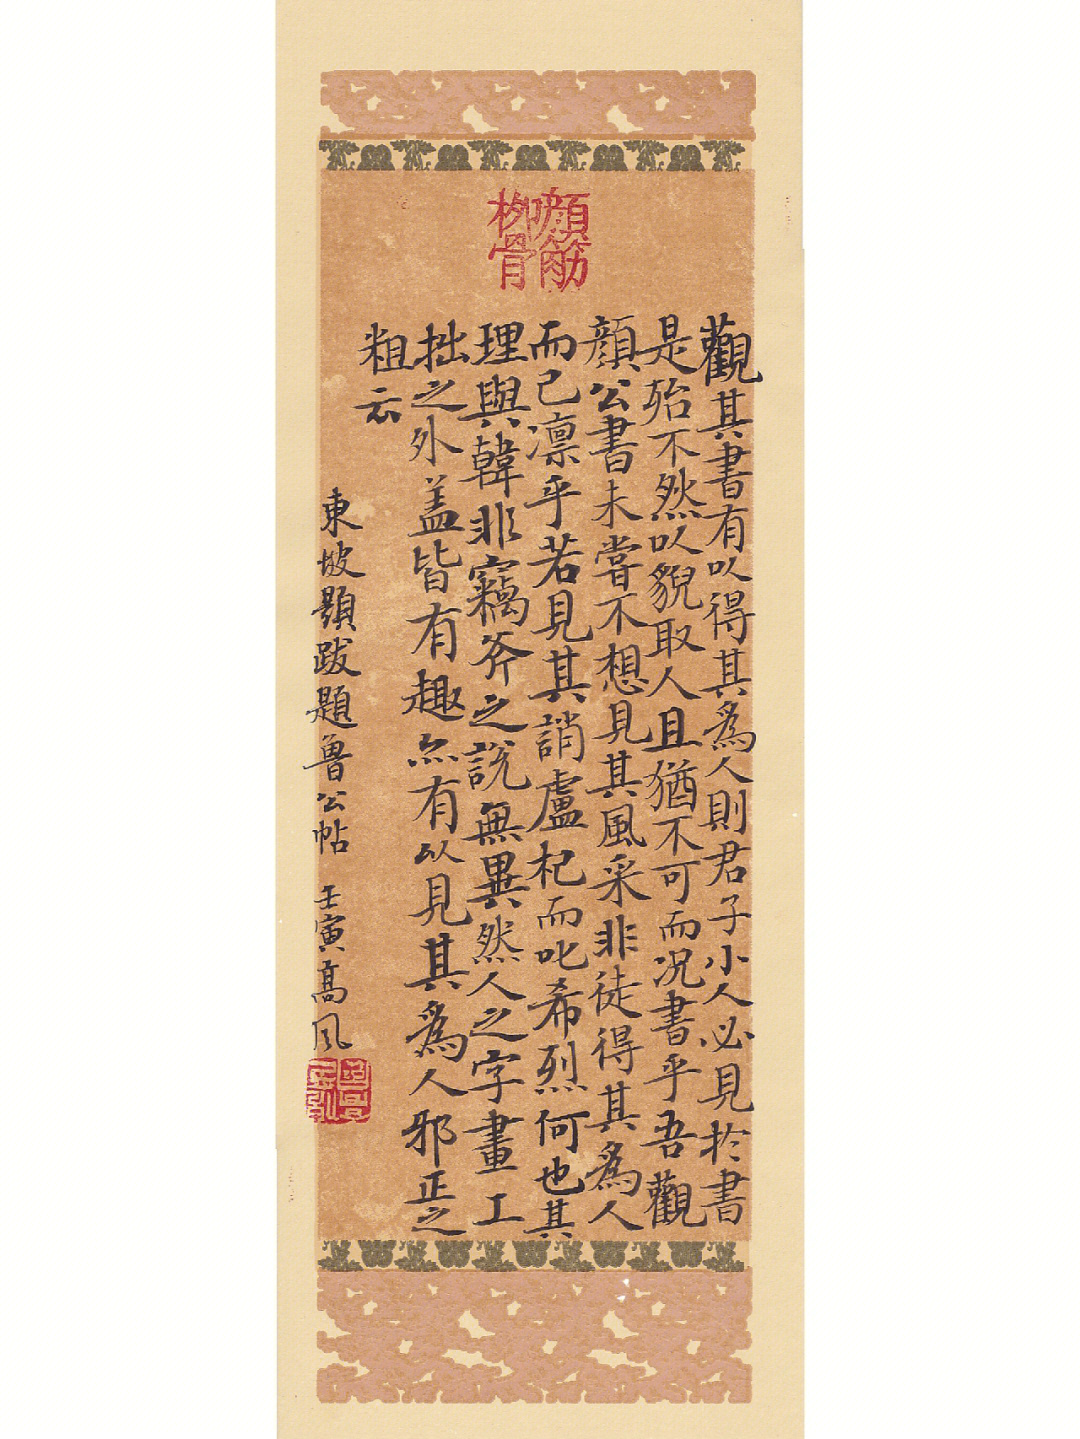 顏筋柳骨
觀其書有以得其爲人則君子小人必見扵書
是殆不然以貎取人且猶不可而况書乎吾觀
顔公書未甞不想見其風采非徒得其爲人
而已凛乎若見其誚盧杞而叱希烈何也其
理與韓非竊斧之説無異然人之字畫工
拙之外盖皆有趣亦有以見其爲人邪正之
粗云
東坡題跋題魯公帖 壬寅高风